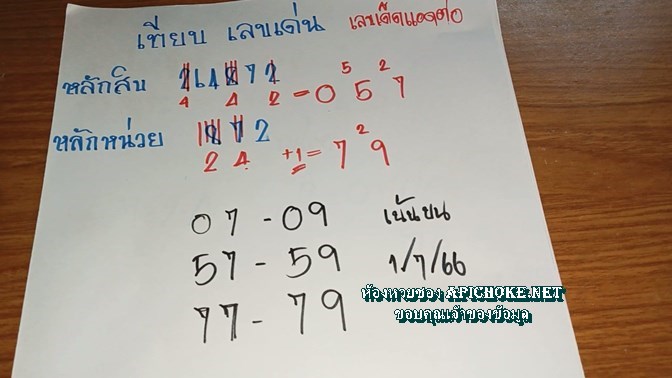 เทียบ เลขเด่น เลขเด็ดแดงต่อ
หลักสิบ 264872
4 4 2 - 0 5 5 2 7
หลักหน่วย 1872
2 4 +1 = 7 2 9
07 - 09 เน้นบน
57 - 59 1/7/66
77 - 79
ห้องหวยซอง APICHOKE.NET
ขอบคุณเจ้าของข้อมูล